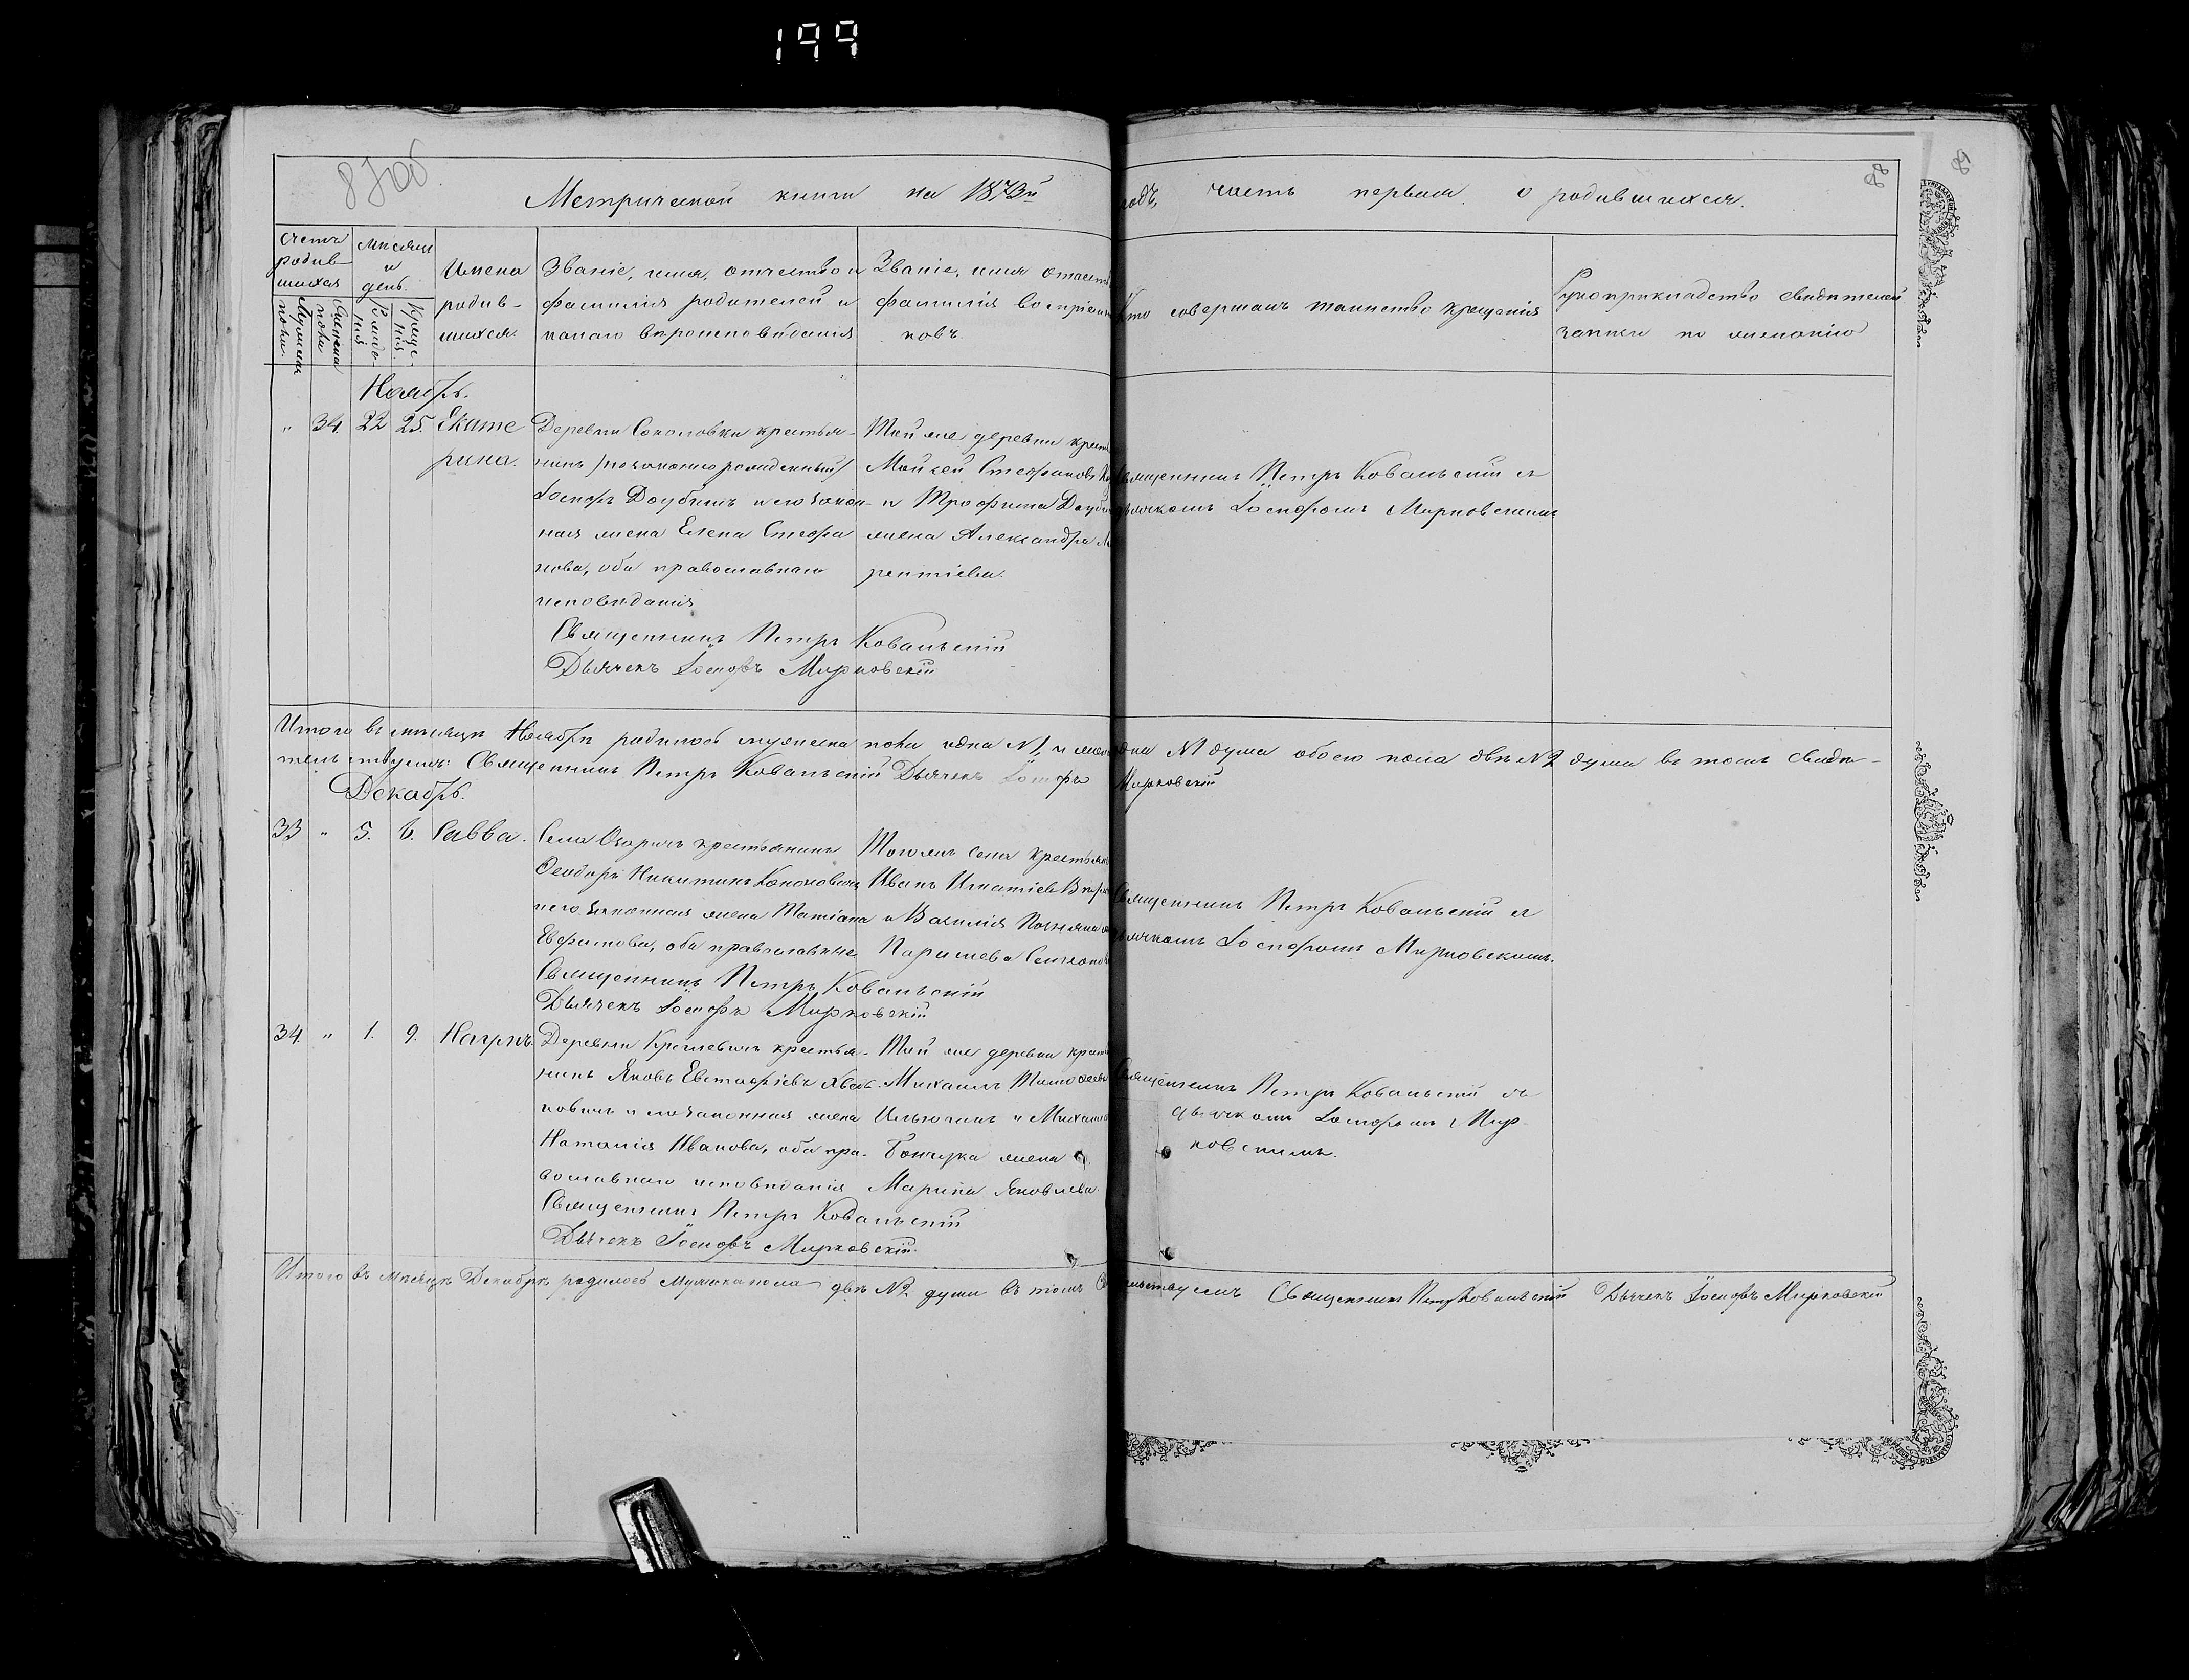 199
87об
88
89
Метрической книги на 1873й годъ, часть первая о родившихся.
Счетъ родив-шихся
Мужеска пола
Женска пола
Мѣсяцъ и день.
Рожде-нія
Креще-нія.
Имена
родив-
шихся.
Званіе, имя, отчество и
фамилія родителей и
какого вѣроисповѣданія
Званіе, имя отчест
фамилія воспріем
ковъ.
Кто совершалъ таинство крещенія
Рукоприкладство свидѣтелей
записи по желанію
Ноябрь.
" 34. 22 25. Екате
рина.
Деревни Соколовки крестья-
нинъ
Іосифъ Доубышъ и его закон-
ная жена Елена Стефа
нова, оба православнаго
исповѣданія
Священникъ Петръ Ковальскій
Дьячекъ Іосифъ Мирковскій
Той же деревни крест
Моисей Стефановъ
и Трофима Доуб
жена Александра Ла
рентіева.
Священникъ Петръ Ковальскій съ
дьячкомъ Іосифомъ Мирковскимъ
Итого въ мѣсяцѣ Ноябрѣ родилось мужеска пола одна №1, и жен одна №1 душа обоего пола двѣ №2 души въ томъ свидѣ-
тельствуемъ: Священникъ Петръ Ковальскій Дьячекъ Іосифъ Мирковскій
Декабрь.
33 " 5. 6. Савва.
Села Озаричъ крестьянинъ
Феодоръ Никитинъ Кононовичъ
и его законная жена Татіана
Евфимова, оба православные
Священникъ Петръ Ковальскій
Дьячекъ Іосифъ Мирковскій
Того же села крестьян
Иванъ Игнатіевъ
и Василія жена
Параскева Семенов
Священникъ Петръ Ковальскій съ
дьячкомъ Іосифомъ Мирковскимъ.
34. " 1. 9.
Деревни крестья-
нинъ Яковъ Евстафіевъ
и его законная жена
Наталія Иванова, оба пра-
вославнаго исповѣданія
Священникъ Петръ Ковальскій
Дьячекъ Іосифъ Мирковскій.
Той же деревни крест
Михаилъ Тимофеев
и Михаила
Бончука жена
Марина Яковлева.
Священникъ Петръ Ковальскій съ
дьячкомъ Іосифомъ Мир-
ковскимъ.
Итого въ мѣсяцѣ Декабрѣ родилось мужеска пола двѣ №2 души въ томъ свидѣтельствуемъ Священникъ Петръ Ковальскій Дьячекъ Іосифъ Мирковскій